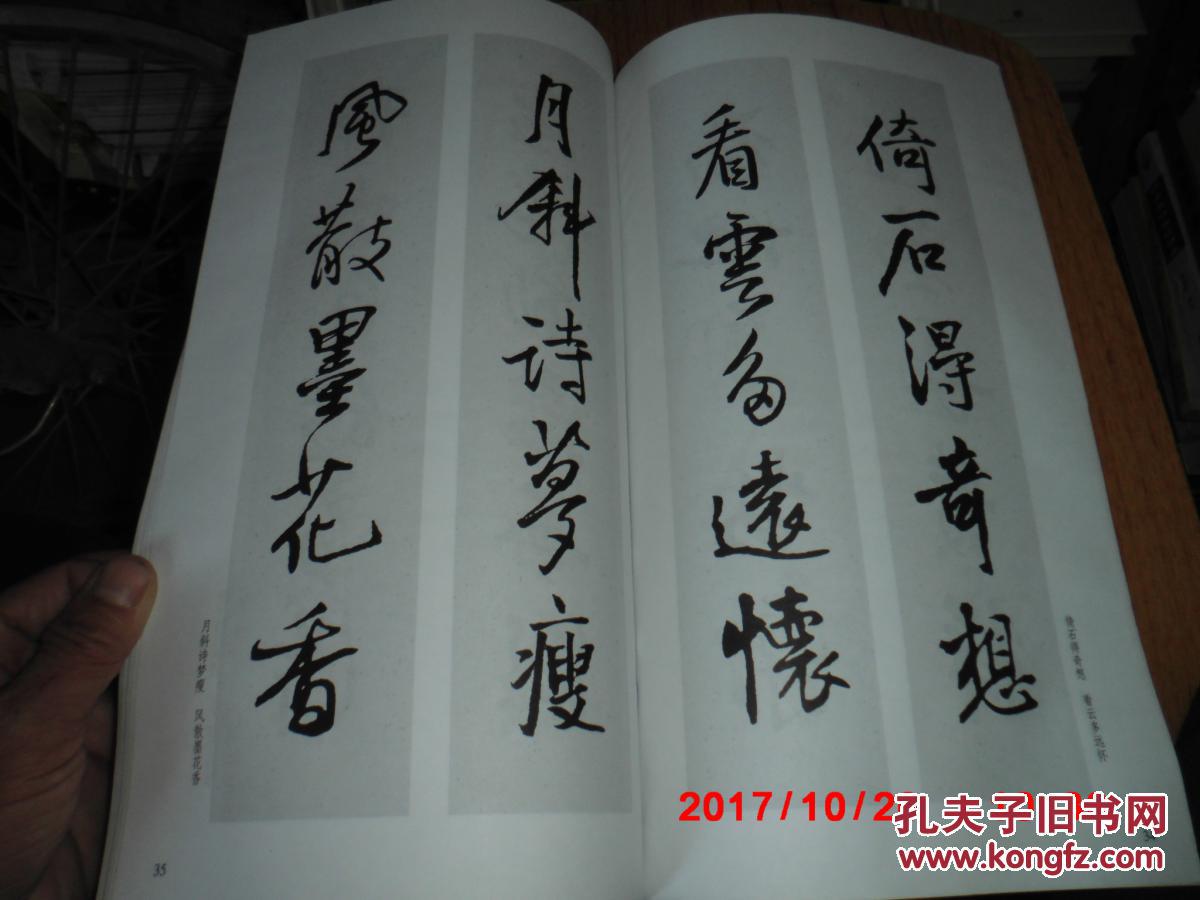 倚石得奇想
看雲多遠懷
倚石得奇想 看云多远怀
月斜诗夢瘦
風散墨花香
月斜诗梦瘦 风散墨花香
35
2017/10/2
孔夫子旧书网
www.kongfz.com